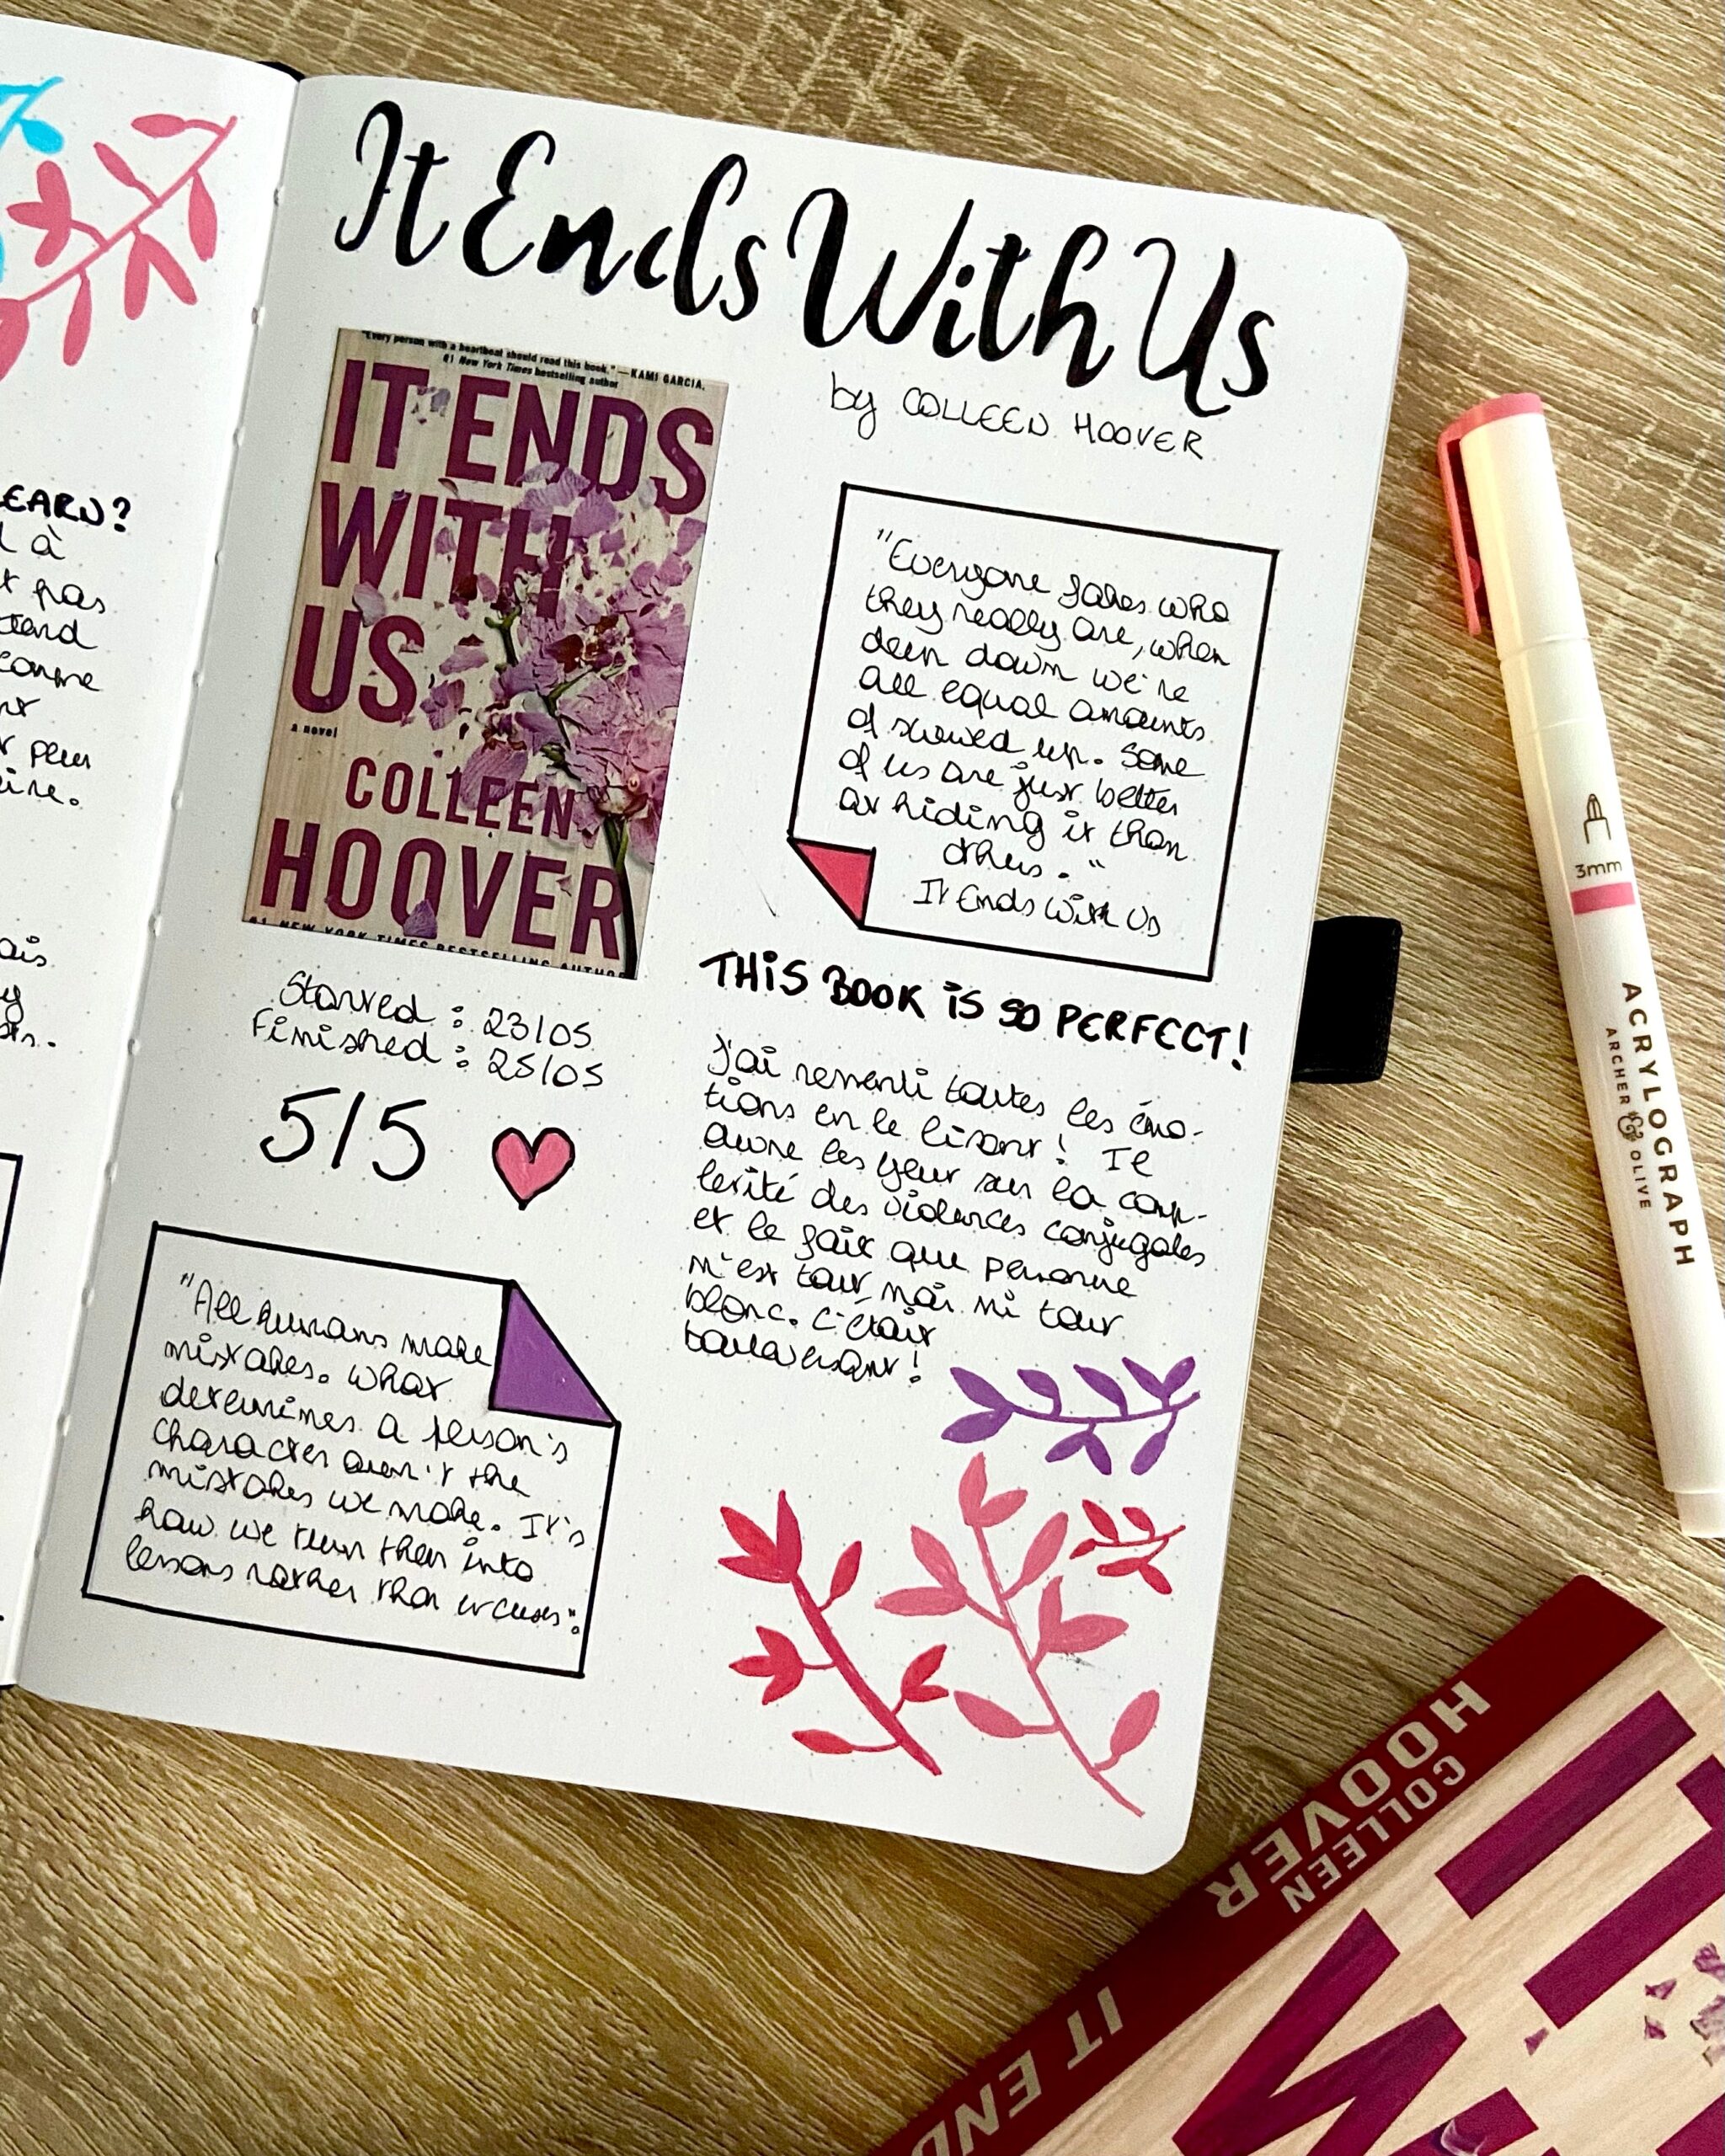 EARN?
à
pas
tend
comme
peu
It Ends With Us
by COLLEEN HOOVER
"Every person with a heartbeat should read this book." —KAMI GARCIA,
#1 New York Times bestselling author
IT ENDS
WITH
US
a novel
COLLEEN
HOOVER
#1 NEW YORK TIMES BESTSELLING AUTHOR
Started : 23/05
Finished : 25/05
5/5
"All humans make
mistakes. What
determines a person's
character aren't the
mistakes we make. It's
how we turn them into
lessons rather than excuses".
"Everyone fakes who
they really are, when
deep down we're
all equal amounts
of screwed up. Some
of us are just better
at hiding it than
others."
It Ends With Us
THIS BOOK IS SO PERFECT!
J'ai ressenti toutes les émo-
tions en le lisant ! Il
ouvre les yeux sur la comp-
lexité des violences conjugales
et le fait que personne
n'est tout noir ni tout
blanc. C'était
bouleversant !
3mm
ACRYLOGRAPH
ARCHER & OLIVE
COLLEEN
HOOVER
IT END
IT
W